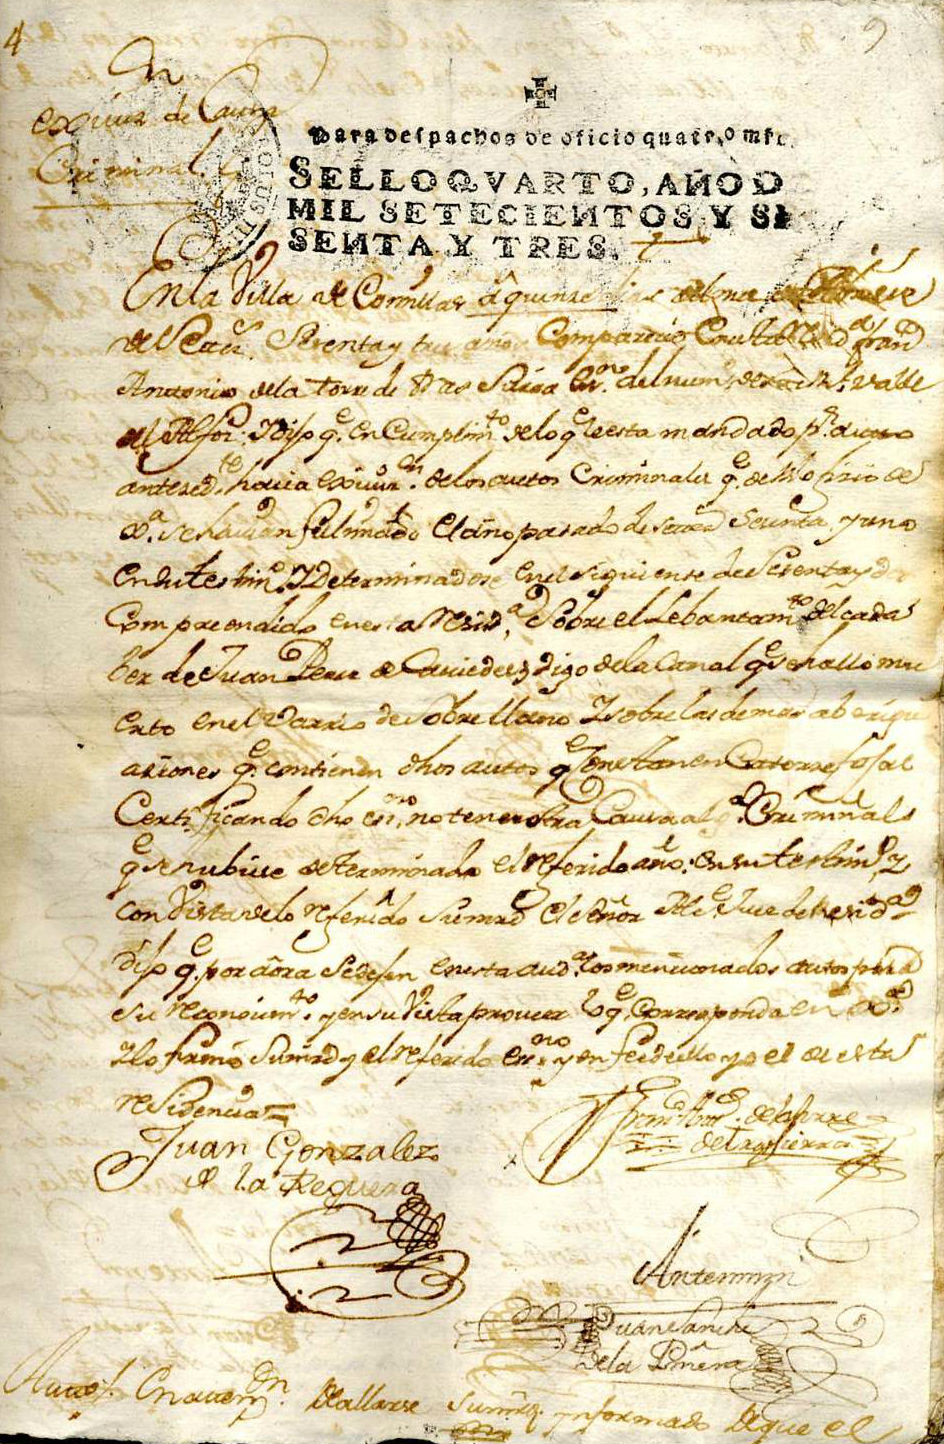 4
9
En
exiviz.n de Causa
Criminal.
Para despachos de oficio quatro mrs.
SELLO QVARTO, AÑO D
MIL SETECIENTOS Y SE
SENTA Y TRES.
En la Villa de Comillas á quinze dias del mes de
de Setez. Sesenta y tres años Comparecio Franc
Antonio de la torre de tras Sierra Es.no del num.o Valle
del Alfoz. Y dijo q.e en Cumplim.to de lo q.e le esta mandado p.r auto
anteced.te havia exiviz.n de los autos Criminales q.e de oficio de
se havian fulminado el año pasado de Setez.s Sesenta y uno
en su testim.o Y determinadose en el siguiente de Sesenta y dos
Comprendido en esta Resid.a Sobre el Lebantam.to del cada
ber de Juan Perez de Caviedes, digo de la Canal q.e se hallo mu
erto en el Varrio de Sobrellano Y sobre las demas aberigu
aziones q.e contienen dhos autos q.e Constan en Catorze fojas
Certificando dho es.no no tener otra Causa alg.a Criminal
q.e se hubiese determinado el referido año. en su testim.o Y
con Vista de lo referido Su mrd el Señor Alc.e Juez de resid.a
dijo q.e por aóra Se dejen en esta aud.a los mencionados autos para
su reconocim.to y en su Vista proveer lo q.e Corresponda en
Y lo firmó Su mrd y el referido es.no y en fee de ello yo el de esta
residencia =
Juan Gonzalez
de la Reguera
Fran.co Ant.o de la torre
de trasSierra
Antemi
Juan Sanchez
de la
Auto. En atenz.n Hallarse Su mrd ynformado de que el